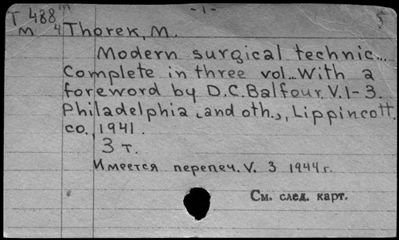 -1-
T 488 m
M 4 Thorek, M.
Modern surgical technic...
Complete in three vol... With a
foreword by D.C. Balfour. V. 1-3.
Philadelphia and oth., Lippincott
co., 1941.
3 т.
Имеется перепеч. V. 3 1944 г.
См. след. карт.